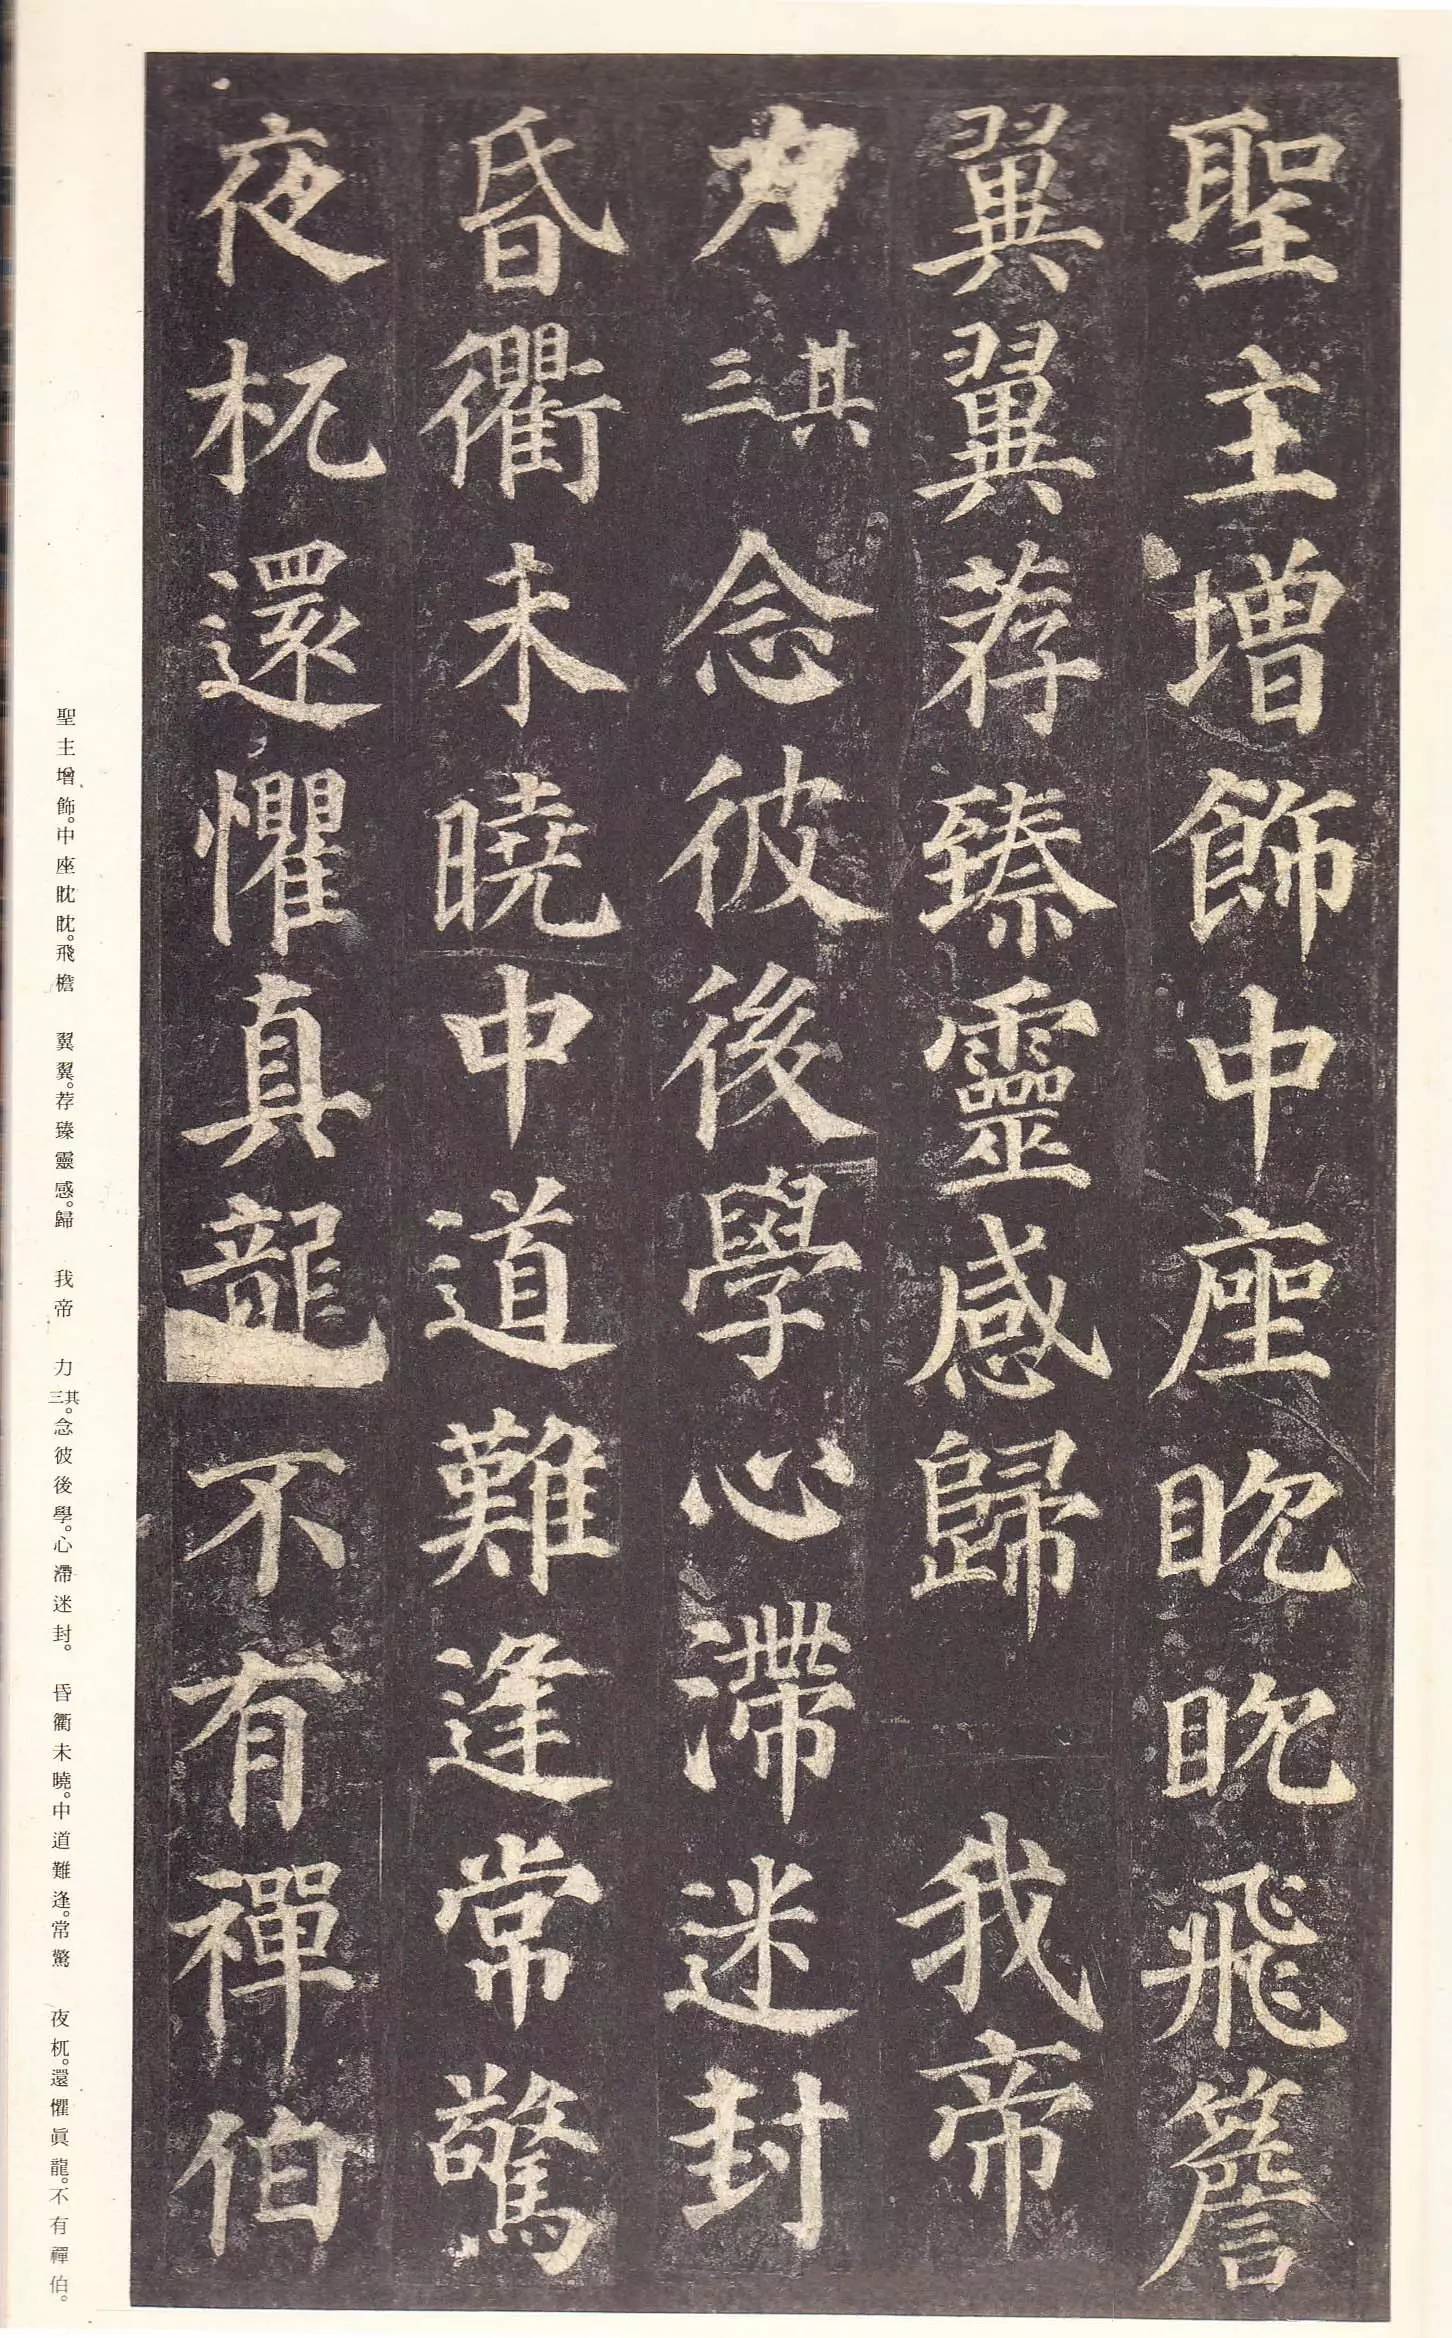 聖主增飾中座眈眈飛簷
翼翼荐臻靈感歸　我帝
力其三念彼後學心滯迷封
昏衢未曉中道難逢常驚
夜杌還懼真龍不有禪伯
聖主增飾。中座眈眈。飛檐　翼翼。荐臻靈感。歸　我帝　力其三。念彼後學。心滯迷封。　昏衢未曉。中道難逢。常驚　夜杌。還懼眞龍。不有禪伯。